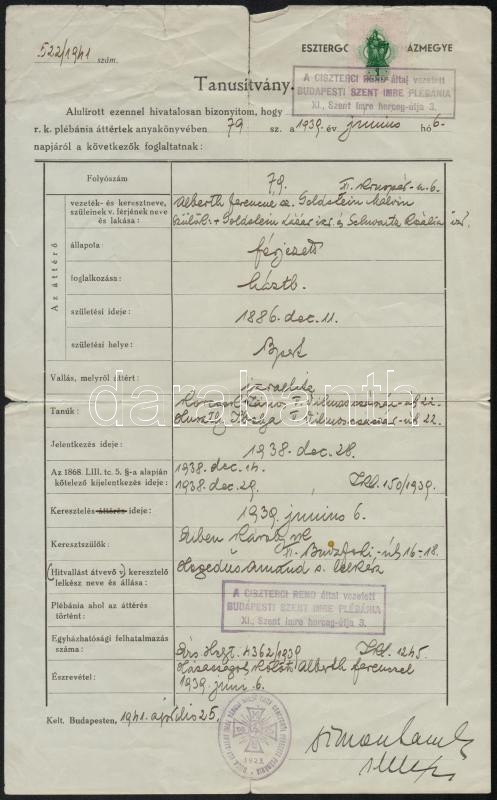 522/1941 szám.
ESZTERGO ÁZMEGYE
Tanusítvány.
A CISZTERCI REND által vezetett
BUDAPESTI SZENT IMRE PLÉBÁNIA
XI., Szent Imre herceg-útja 3.
Alulírott ezennel hivatalosan bizonyítom, hogy
r. k. plébánia áttértek anyakönyvében 79 sz. a 1939. év junius hó 6-
napjáról a következők foglaltatnak:
Folyószám 79.
Az áttérő
vezeték- és keresztneve, szüleinek v. férjének neve és lakása:
Alberth Ferencné sz. Goldstein Malvin
Szülők: + Goldstein Lázár izr. és Schwartz Rozália izr.
állapota: férjezett
foglalkozása: háztb.
születési ideje: 1886. dec. 11.
születési helye: Bpest
Vallás, melyről áttért: izraelita
Tanúk:
Jelentkezés ideje: 1938. dec. 28.
Az 1868. LIII. tc. 5. §-a alapján kötelező kijelentkezés ideje:
1938. dec. 14.
1938. dec. 29. 150/1939.
Keresztelés áttérés ideje: 1939. junius 6.
Keresztszülők:
(Hitvallást átvevő) keresztelő lelkész neve és állása:
Hegedüs Amand s. lelkész
Plébánia ahol az áttérés történt:
A CISZTERCI REND által vezetett
BUDAPESTI SZENT IMRE PLÉBÁNIA
XI., Szent Imre herceg-útja 3.
Egyházhatósági felhatalmazás száma: 4362/1939 1245.
Észrevétel: Házasságot kötött Alberth Ferenccel
1939. jun. 6.
Kelt. Budapesten, 1941. április 25.
1923
darabanth